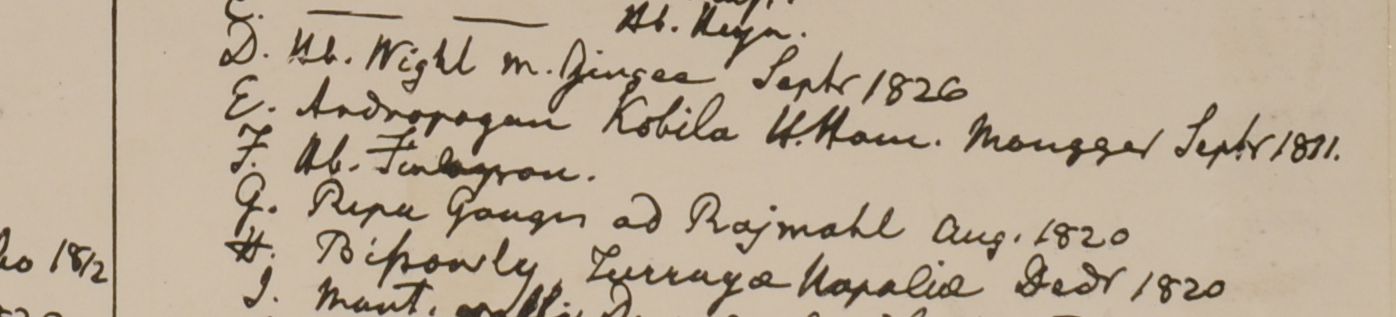 C. —— —— Hb. Heyn.
D. Hb. Wight m. Gingee Septr 1826
E. Andropogon Kobila H. Ham. Mongger Septr 1811.
F. Hb. Finlayson.
G. Ripa Gangis ad Rajmahl Aug. 1820
H. Bissowly Turraya Napalia Decr 1820
I. Mont.
ho 1812